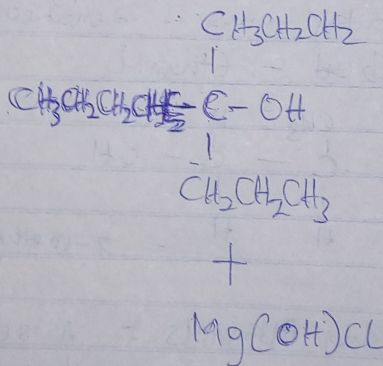 CH3CH2CH2
|
CH3CH2CH2CH2 - C - OH
|
CH2CH2CH3
+
Mg(OH)Cl